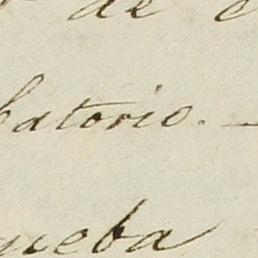 de
batorio. —
ueba